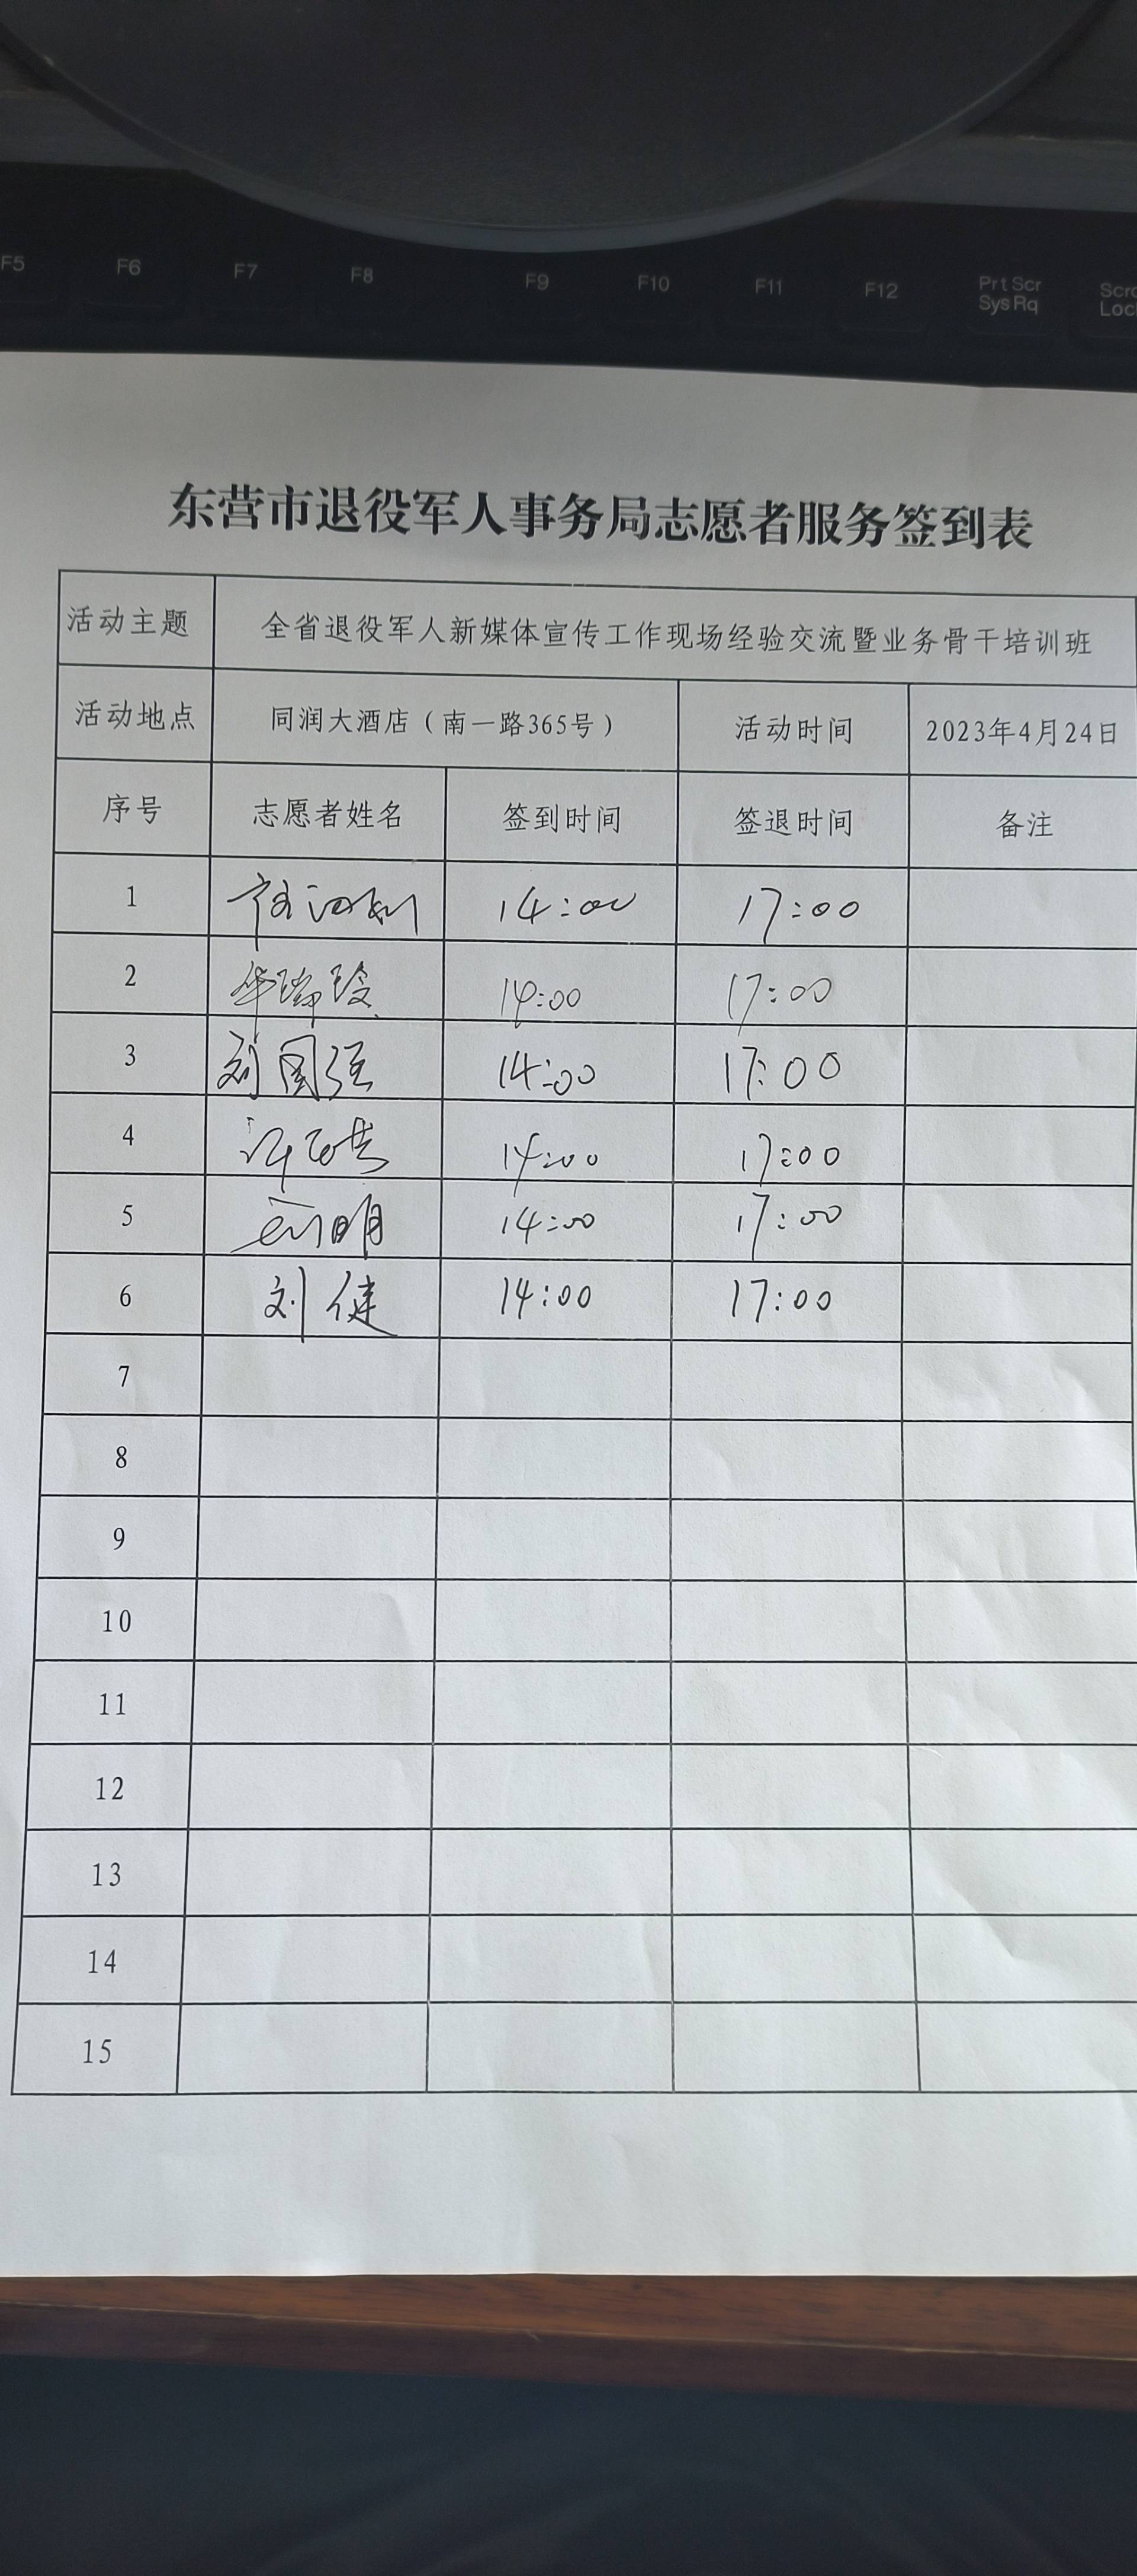 F5 F6 F7 F8 F9 F10 F11 F12 Prt Scr Scro
Sys Rq Loc
东营市退役军人事务局志愿者服务签到表
活动主题 全省退役军人新媒体宣传工作现场经验交流暨业务骨干培训班
活动地点 同润大酒店（南一路365号） 活动时间 2023年4月24日
序号 志愿者姓名 签到时间 签退时间 备注
1 14:00 17:00
2 14:00 17:00
3 刘国强 14:00 17:00
4 14:00 17:00
5 14:00 17:00
6 刘健 14:00 17:00
7
8
9
10
11
12
13
14
15